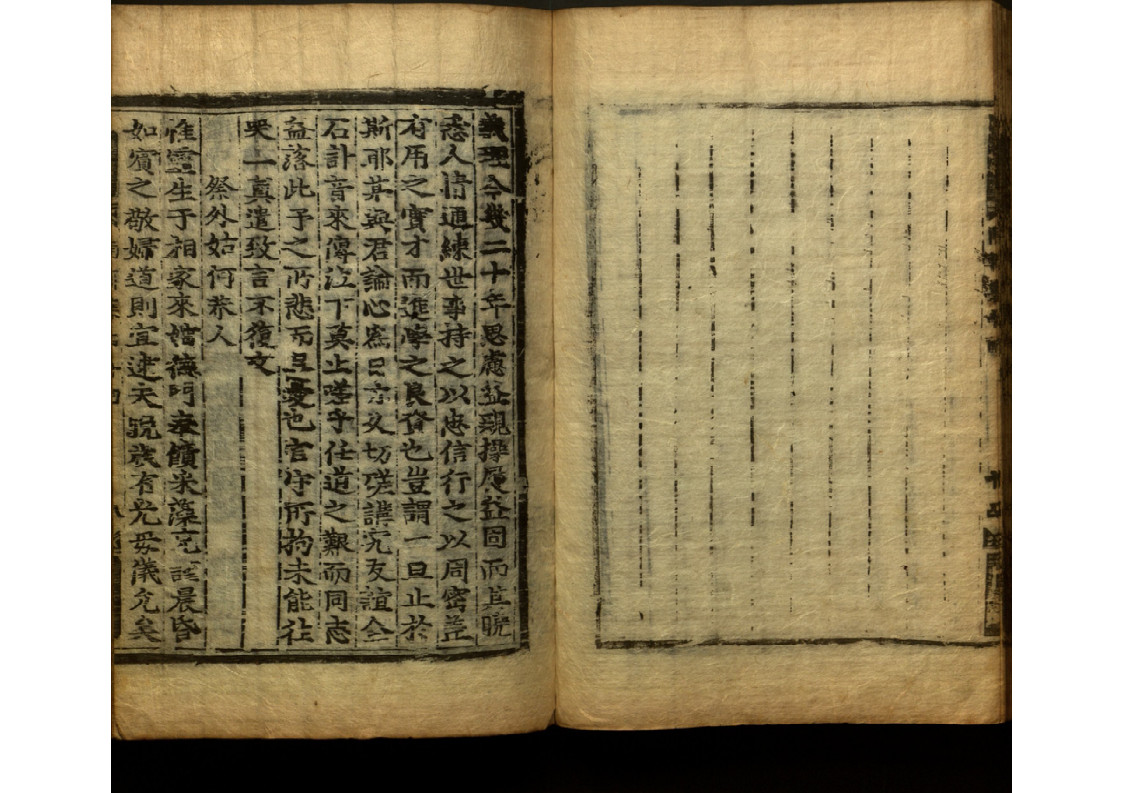 義理今幾二十年思慮益親操履益固而其曉
悉人情通練世事持之以忠信行之以周密益
有用之實才而進學之良資也豈謂一旦止於
斯耶某與君論心爲日方久切磋講究友誼金
石訃音來傳泣下莫止嗟乎任道之艱而同志
益落此予之所悲而且憂也官守所拘未能往
哭一眞遣致言不復文
祭外姑何恭人
惟靈生于相家來嬪德門奉饋采藻克謹晨昏
如賓之敬婦道則宜逮夫説歲有光母儀允矣